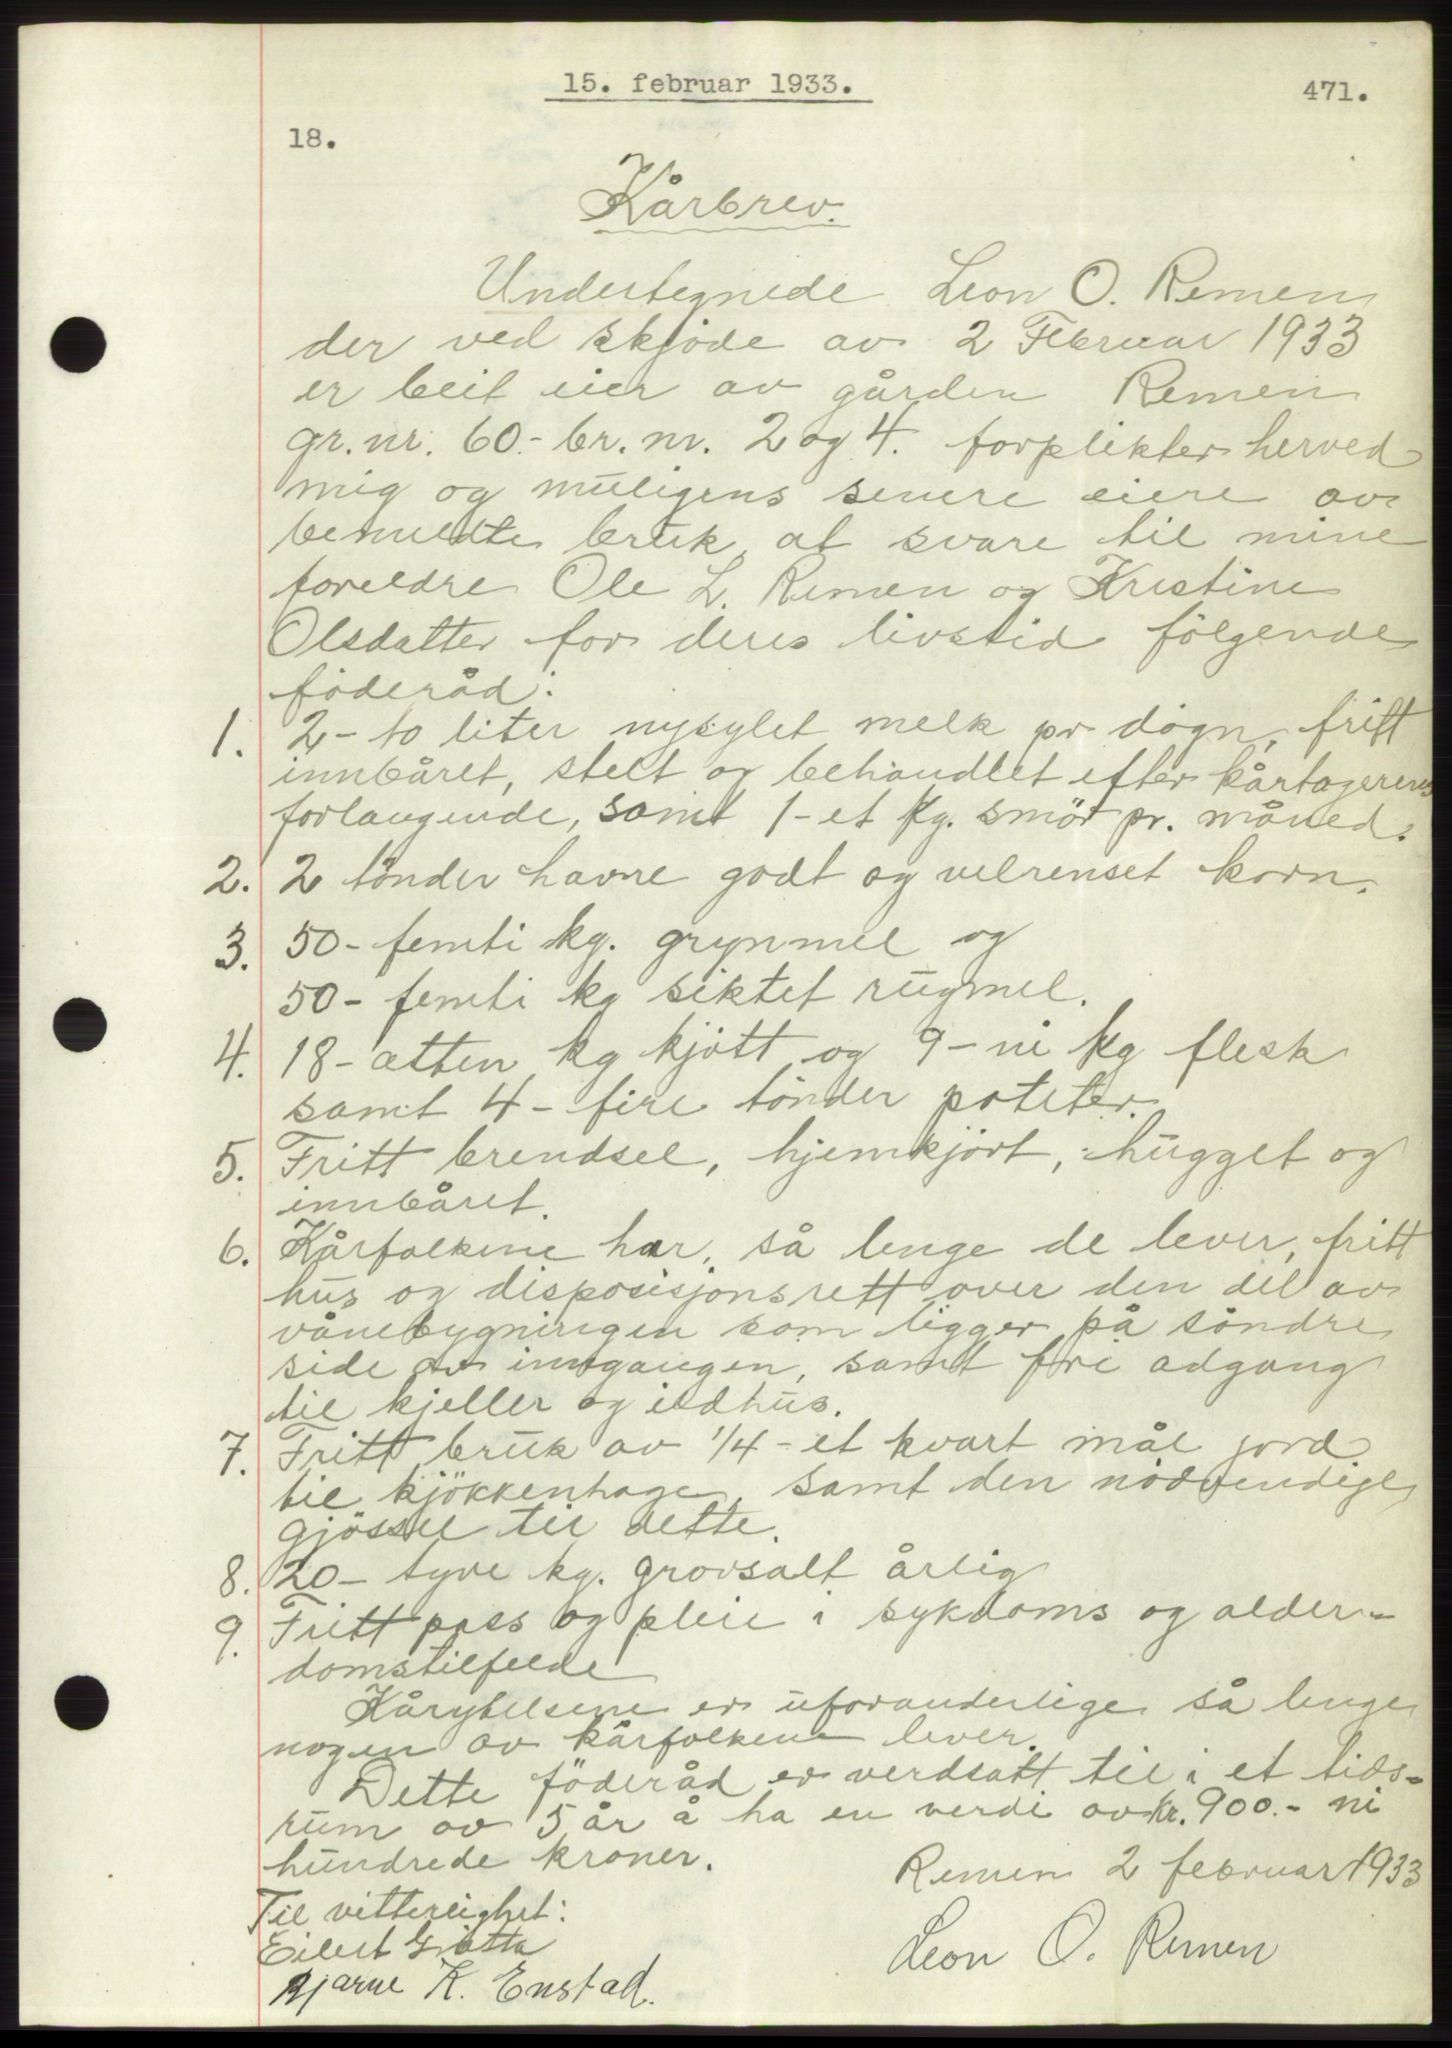 15. februar 1933.
471.
18.
Kårbrev.
Undertegnede Leon O. Remen
der ved skjøde av 2 Februar 1933
er bleit eier av gården Remen
gr. nr. 60.- br. nr. 2 og 4. forplikter herved
mig og muligens senere eiere av
bemeldte bruk, at svare til mine
foreldre Ole L. Remen og Kristine
Olsdatter for deres livstid følgende
föderåd:
1. 2 - to liter nysylet melk pr døgn, fritt
innbåret, stelt og behandlet efter kårtagerens
forlangende, samt 1 - et kg. smör pr. måned.
2. 2 tönder havre godt og velrenset korn.
3. 50 - femti kg. grynmel og
50 - femti kg siktet rugmel.
4. 18 - atten kg kjött og 9 - ni kg flesk
samt 4 - fire tönder poteter.
5. Fritt brendsel, hjemkjört, hugget og
innbåret.
6. Kårfolkene har, så lenge de lever, fritt
hus og disposisjonsrett over den del av
vånebygningen som ligger på söndre
side av inngangen, samt fri adgang
til kjeller og ildhus.
7. Fritt bruk av 1/4 - et kvart mål jord
til kjökkenhage, samt den nödvendige
gjössel til dette.
8. 20 - tyve kg. grovsalt årlig
9. Fritt pass og pleie i sykdoms og alder-
domstilfelde
Kårytelsene er uforanderlige så lenge
nogen av kårfolkene lever.
Dette föderåd er verdsatt til i et tids-
rum av 5 år å ha en verdi av kr. 900.- ni
hundrede kroner.
Remen 2 februar 1933
Til vitterlighet:
Eilert
Leon O. Remen
Bjarne K. Enstad.